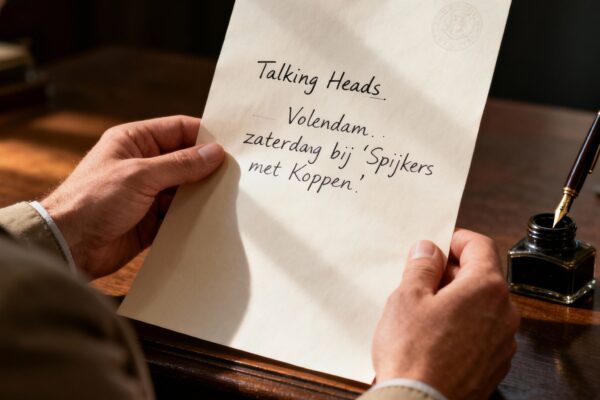 Talking Heads.
Volendam..
zaterdag bij 'Spijkers
met Koppen.'